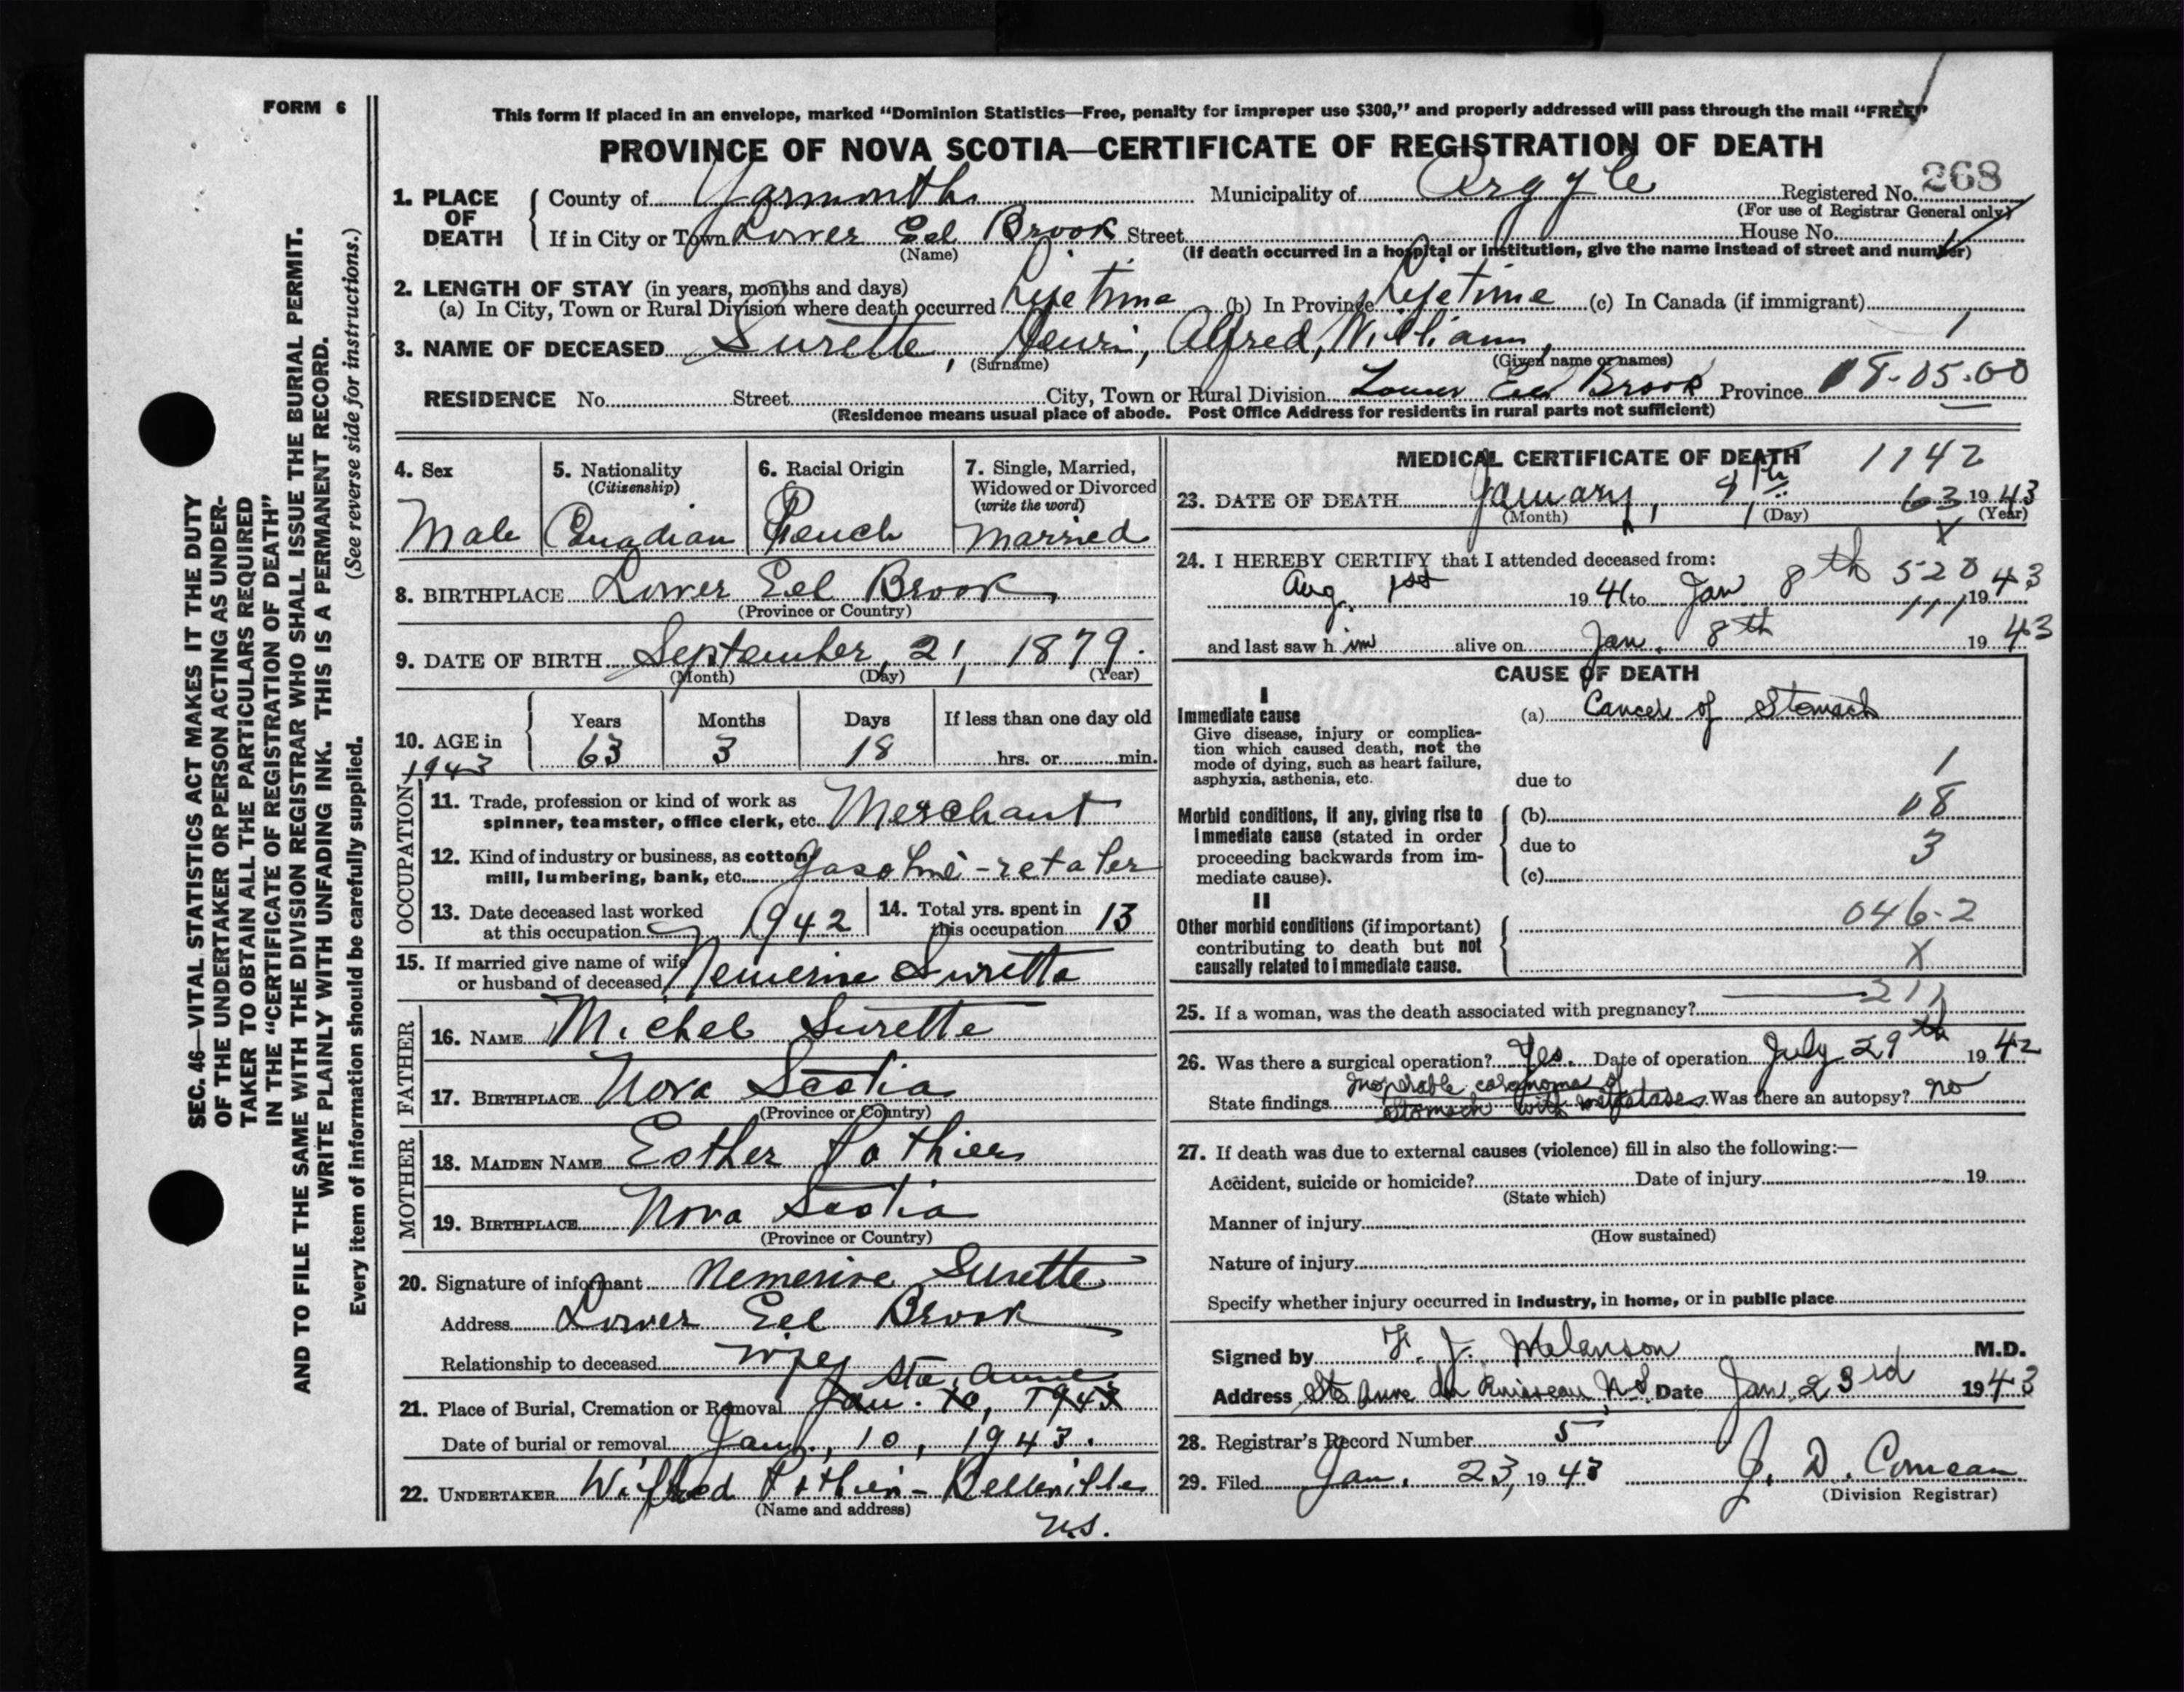 FORM 6
This form if placed in an envelope, marked "Dominion Statistics—Free, penalty for improper use $300," and properly addressed will pass through the mail "FREE"
PROVINCE OF NOVA SCOTIA—CERTIFICATE OF REGISTRATION OF DEATH
1. PLACE OF DEATH County of Yarmouth Municipality of Argyle Registered No. 268
(For use of Registrar General only)
If in City or Town Lower Eel Brook Street House No.
(Name) (If death occurred in a hospital or institution, give the name instead of street and number)
2. LENGTH OF STAY (in years, months and days)
(a) In City, Town or Rural Division where death occurred Lifetime (b) In Province Lifetime (c) In Canada (if immigrant)
3. NAME OF DECEASED Surette, Henri, Alfred, William, 1
(Surname) (Given name or names)
RESIDENCE No. Street City, Town or Rural Division Lower Eel Brook Province 18-05.00
(Residence means usual place of abode. Post Office Address for residents in rural parts not sufficient)
4. Sex 5. Nationality (Citizenship) 6. Racial Origin 7. Single, Married, Widowed or Divorced (write the word)
Male Canadian French Married
8. BIRTHPLACE Lower Eel Brook
(Province or Country)
9. DATE OF BIRTH September, 21, 1879.
(Month) (Day) (Year)
10. AGE in 1943 Years Months Days If less than one day old
63 3 18 hrs. or min.
OCCUPATION
11. Trade, profession or kind of work as spinner, teamster, office clerk, etc. Merchant
12. Kind of industry or business, as cotton mill, lumbering, bank, etc.
13. Date deceased last worked at this occupation 1942 14. Total yrs. spent in this occupation 13
15. If married give name of wife or husband of deceased Nemerise Surette
FATHER
16. NAME Michel Surette
17. BIRTHPLACE Nova Scotia
(Province or Country)
MOTHER
18. MAIDEN NAME Esther Pothier
19. BIRTHPLACE Nova Scotia
(Province or Country)
20. Signature of informant Nemerise Surette
Address Lower Eel Brook
Relationship to deceased Wife
Ste. Anne
21. Place of Burial, Cremation or Removal Jan. 10, 1943
Date of burial or removal Jan., 10, 1943.
22. UNDERTAKER Wilfred Pothier - Belleville
(Name and address)
N.S.
MEDICAL CERTIFICATE OF DEATH 1142
23. DATE OF DEATH January, 63 1943
(Month) (Day) (Year)
X
24. I HEREBY CERTIFY that I attended deceased from: 520
Aug. 1st 1941 to Jan 8th 1943
111
and last saw him alive on Jan. 8th 1943
CAUSE OF DEATH
I
Immediate cause (a) Cancer of Stomach
Give disease, injury or complication which caused death, not the mode of dying, such as heart failure, asphyxia, asthenia, etc.
due to 1
Morbid conditions, if any, giving rise to immediate cause (stated in order proceeding backwards from immediate cause). (b) 18
due to 3
(c)
II
Other morbid conditions (if important) contributing to death but not causally related to immediate cause. 046-2
X
211
25. If a woman, was the death associated with pregnancy?
26. Was there a surgical operation? Yes. Date of operation July 29th 1942
State findings Inoperable carcinoma of stomach with metastases Was there an autopsy? no
27. If death was due to external causes (violence) fill in also the following:—
Accident, suicide or homicide? Date of injury 19
(State which)
Manner of injury
(How sustained)
Nature of injury
Specify whether injury occurred in industry, in home, or in public place
Signed by F. J. Melanson M.D.
Address Ste Anne du Ruisseau N.S. Date Jan. 23rd 1943
28. Registrar's Record Number 5
29. Filed Jan. 23, 1943 J. D. Comeau
(Division Registrar)
SEC. 46—VITAL STATISTICS ACT MAKES IT THE DUTY
OF THE UNDERTAKER OR PERSON ACTING AS UNDER-
TAKER TO OBTAIN ALL THE PARTICULARS REQUIRED
IN THE "CERTIFICATE OF REGISTRATION OF DEATH"
AND TO FILE THE SAME WITH THE DIVISION REGISTRAR WHO SHALL ISSUE THE BURIAL PERMIT.
WRITE PLAINLY WITH UNFADING INK. THIS IS A PERMANENT RECORD.
Every item of information should be carefully supplied. (See reverse side for instructions.)